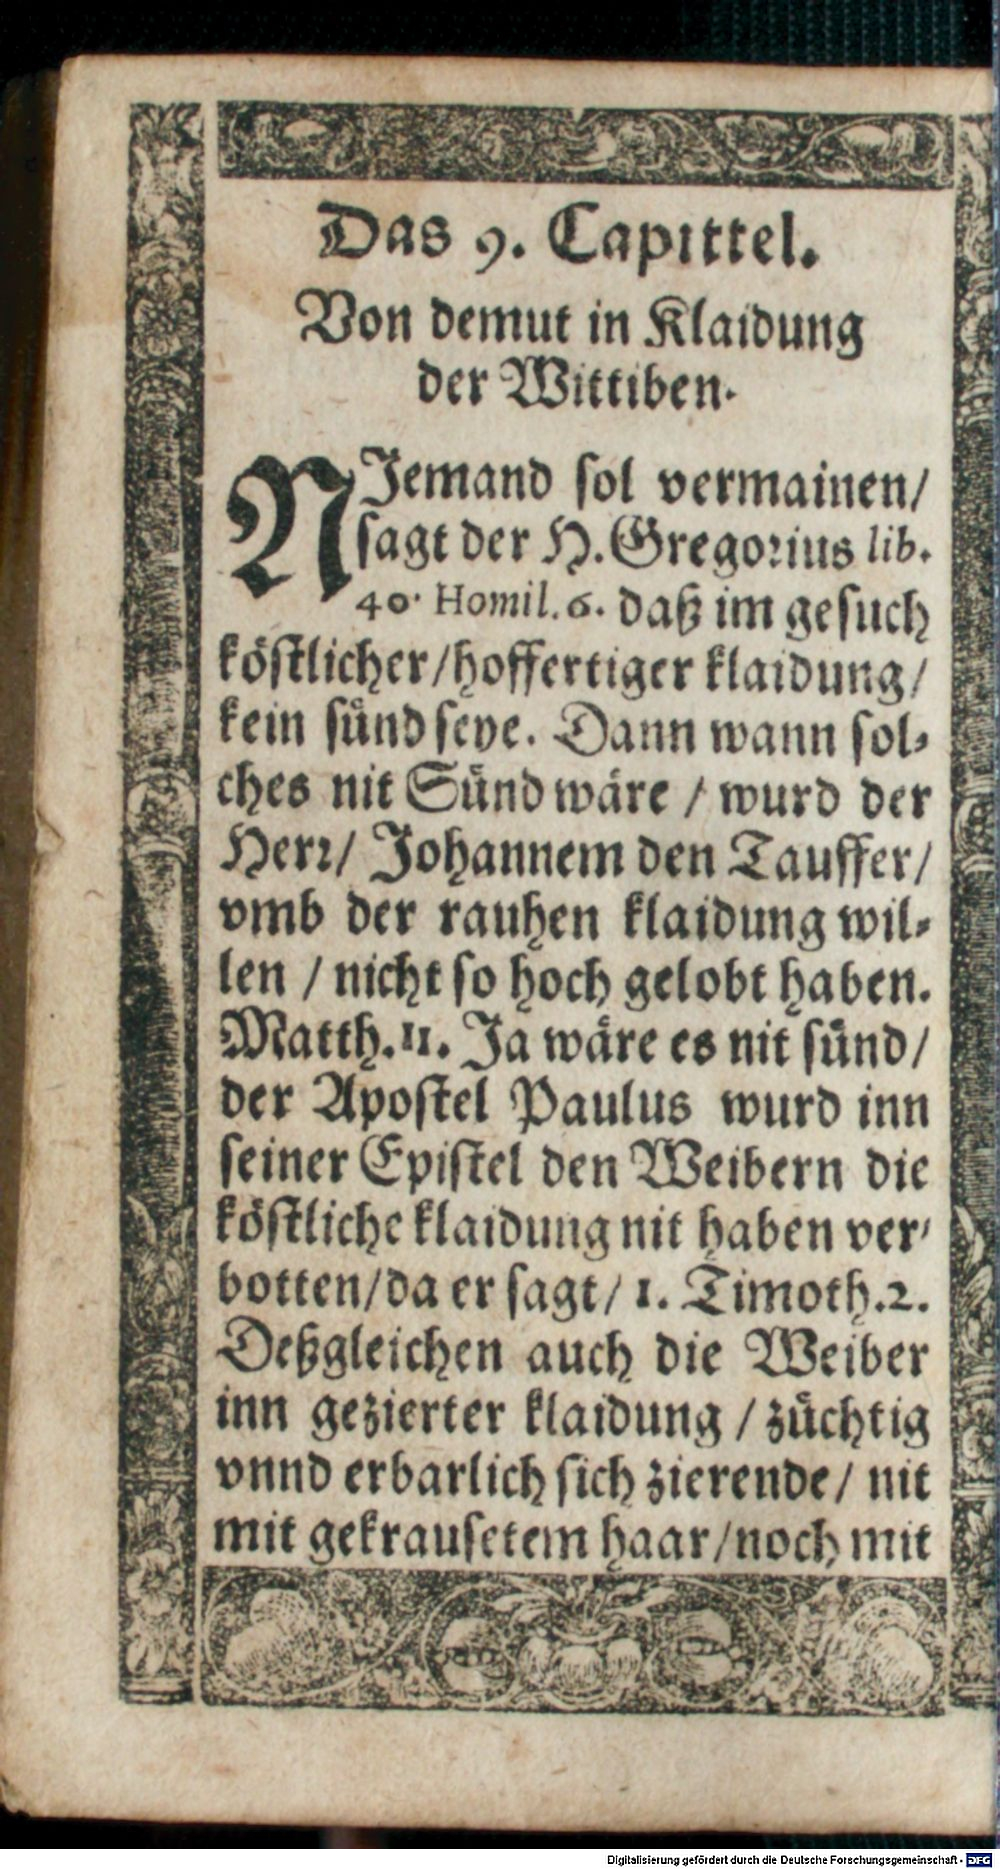 Das 9. Capittel.
Von demut in Klaidung
der Wittiben.
NJemand sol vermainen/
sagt der H. Gregorius lib.
40. Homil. 6. daß im gesuch
köstlicher/hoffertiger klaidung/
kein sünd seye. Dann wann sol-
ches nit Sünd wäre / wurd der
Herr/ Johannem den Tauffer/
vmb der rauhen klaidung wil-
len / nicht so hoch gelobt haben.
Matth. 11. Ja wäre es nit sünd/
der Apostel Paulus wurd inn
seiner Epistel den Weibern die
köstliche klaidung nit haben ver-
botten/da er sagt/ 1. Timoth. 2.
Deßgleichen auch die Weiber
inn gezierter klaidung / züchtig
vnnd erbarlich sich zierende/ nit
mit gekrausetem haar/noch mit
Digitalisierung gefördert durch die Deutsche Forschungsgemeinschaft - DFG